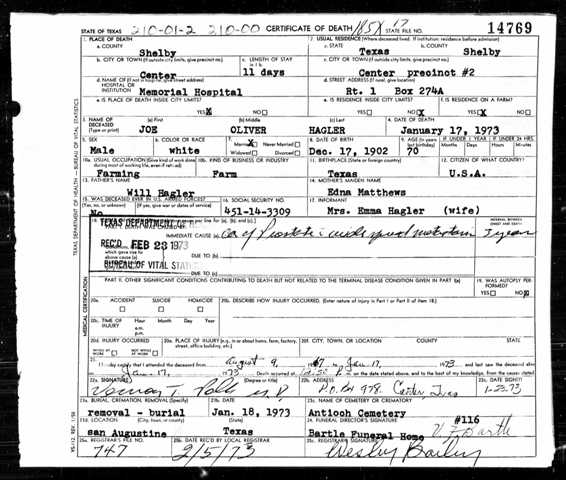 STATE OF TEXAS 210-01-2 210-00 CERTIFICATE OF DEATH 185X 17 STATE FILE NO. 14769
1. PLACE OF DEATH 2. USUAL RESIDENCE (Where deceased lived. If institution: residence before admission)
a. COUNTY Shelby a. STATE Texas b. COUNTY Shelby
b. CITY OR TOWN (If outside city limits, give precinct no.) Center c. LENGTH OF STAY in 1 b 11 days c. CITY OR TOWN (If outside city limits, give precinct no.) Center precinct #2
d. NAME OF (If not in hospital, give street address) HOSPITAL OR INSTITUTION Memorial Hospital d. STREET ADDRESS (If rural, give location) Rt. 1 Box 274A
e. IS PLACE OF DEATH INSIDE CITY LIMITS? YES X NO e. IS RESIDENCE INSIDE CITY LIMITS? YES NO X f. IS RESIDENCE ON A FARM? YES X NO
3. NAME OF DECEASED (Type or print) (a) First JOE (b) Middle OLIVER (c) Last HAGLER 4. DATE OF DEATH January 17, 1973
5. SEX Male 6. COLOR OR RACE white 7. Married X Never Married Widowed Divorced 8. DATE OF BIRTH Dec. 17, 1902 9. AGE (In years last birthday) 70 IF UNDER 1 YEAR Months Days IF UNDER 24 HRS. Hours Minutes
10a. USUAL OCCUPATION (Give kind of work done during most of working life, even if retired) Farming 10b. KIND OF BUSINESS OR INDUSTRY Farm 11. BIRTHPLACE (State or foreign country) Texas 12. CITIZEN OF WHAT COUNTRY? U.S.A.
13. FATHER'S NAME Will Hagler 14. MOTHER'S MAIDEN NAME Edna Matthews
15. WAS DECEASED EVER IN U.S. ARMED FORCES? No 16. SOCIAL SECURITY NO. 451-14-3309 17. INFORMANT Mrs. Emma Hagler (wife)
TEXAS DEPARTMENT OF
IMMEDIATE CAUSE (a) Ca of Prostate: widespread metastasis 3 years
REC'D FEB 23 1973
DUE TO (b)
BUREAU OF VITAL STAT
DUE TO (c)
PART II. OTHER SIGNIFICANT CONDITIONS CONTRIBUTING TO DEATH BUT NOT RELATED TO THE TERMINAL DISEASE CONDITION GIVEN IN PART I(a) 19. WAS AUTOPSY PERFORMED? YES NO X
20a. ACCIDENT SUICIDE HOMICIDE 20b. DESCRIBE HOW INJURY OCCURRED. (Enter nature of injury in Part I or Part II of Item 18.)
20c. TIME OF INJURY Hour a.m. p.m. Month Day Year
20d. INJURY OCCURRED WHILE AT WORK NOT WHILE AT WORK 20e. PLACE OF INJURY (e.g., in or about home, farm, factory, street, office building, etc.) 20f. CITY, TOWN, OR LOCATION COUNTY STATE
21. I hereby certify that I attended the deceased from August 9, 1967 to Jan 17, 1973 and last saw the deceased alive
on Jan. 17, 1973. Death occurred at m. on the date stated above, and to the best of my knowledge, from the causes stated.
22a. SIGNATURE (Degree or title) M.D. 22b. ADDRESS P.O. Box 978, Center, Tex 22c. DATE SIGNED 1-23-73
23a. BURIAL, CREMATION, REMOVAL (Specify) removal - burial 23b. DATE Jan. 18, 1973 23c. NAME OF CEMETERY OR CREMATORY Antioch Cemetery
23d. LOCATION (City, town, or county) (State) san Augustine Texas 24. FUNERAL DIRECTOR'S SIGNATURE #116 Bartle Funeral Home
25a. REGISTRAR'S FILE NO. 747 25b. DATE REC'D BY LOCAL REGISTRAR 2/5/73 25c. REGISTRAR'S SIGNATURE Wesley
TEXAS DEPARTMENT OF HEALTH — BUREAU OF VITAL STATISTICS
MEDICAL CERTIFICATION
VS-112 REV. 1/58